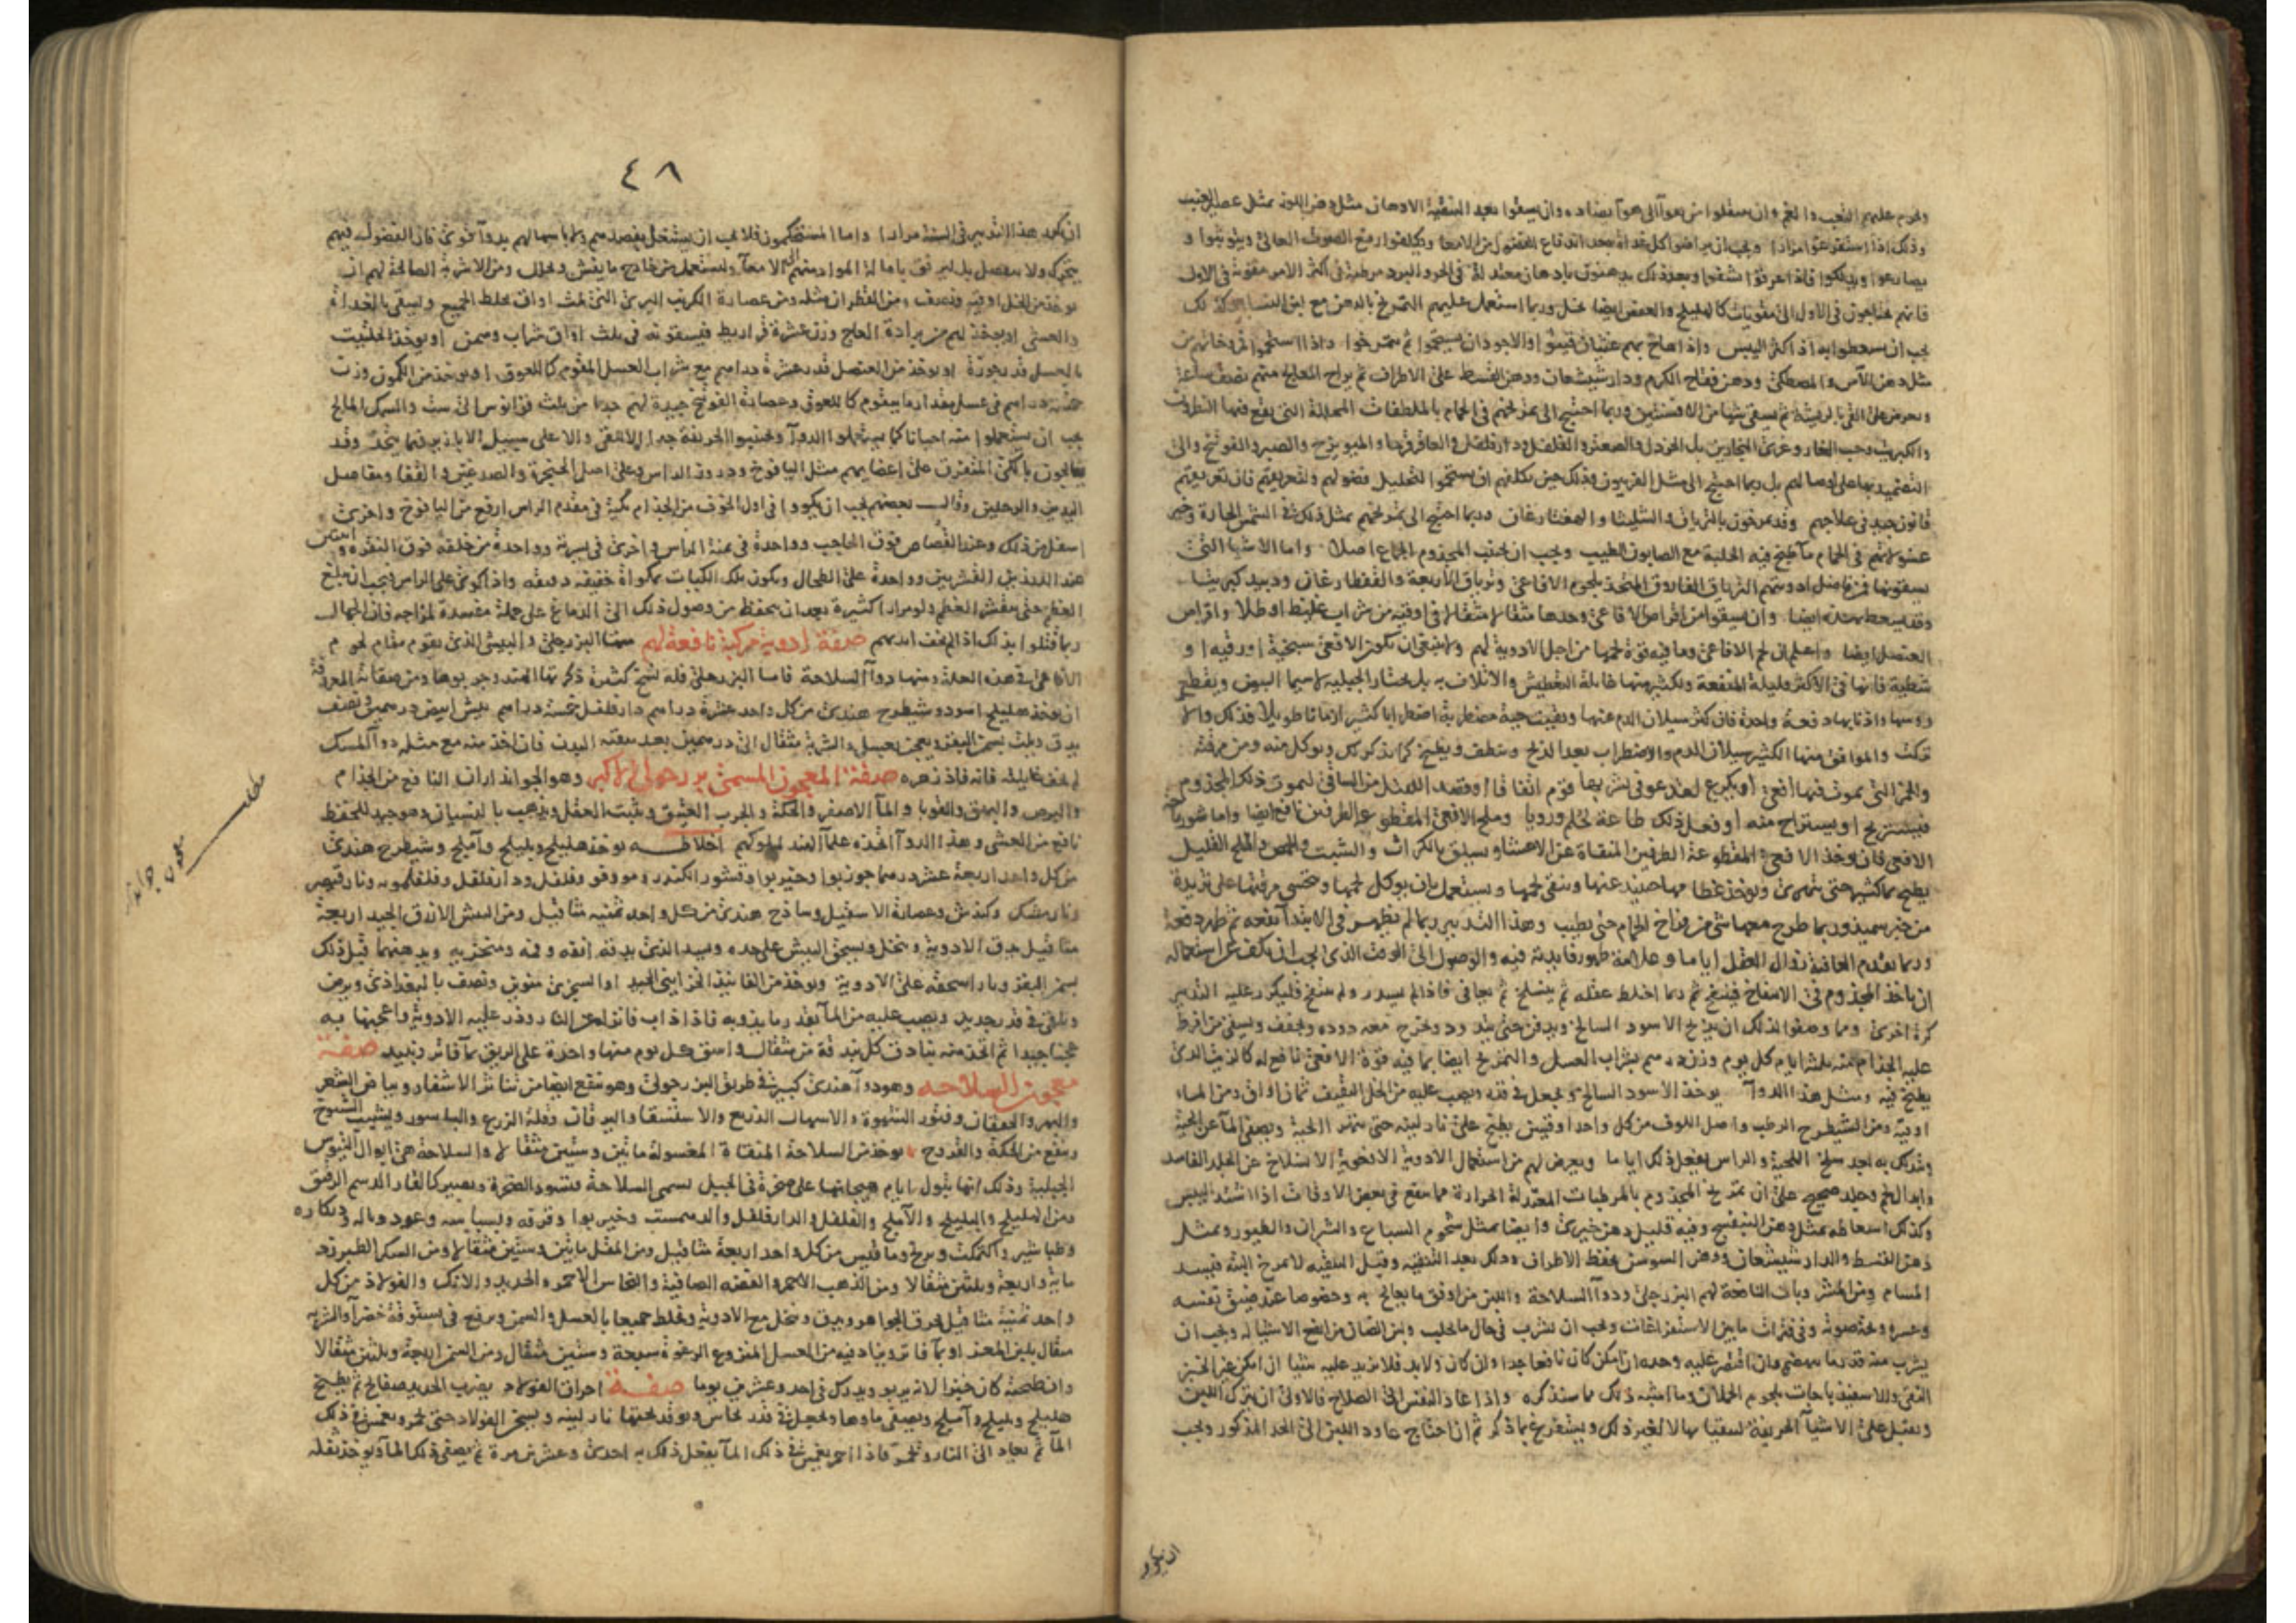 ويحرم عليهم التعب والغم وان ينتقلوا من هوآ الى هوآ يضاده وان يسقوا بعد التنقية الادهان مثل دهن اللوز بمثل عصير العنب
وذلك اذا استفرغوا مرارا ويجب ان يراضوا كل غداة بعد اندفاع الفضول من الامعا ويكلفوا رفع الصوت العالى ويتوثبوا و
يصارعوا ويدلكوا فاذا عرقوا نشفوا وبعد ذلك يدهنون بادهان معتدلة فى الحر والبرد مرطبة فى اكثر الامر مقوية فى الاول
فانهم يحتاجون فى الاول الى مقويات كالهليلج والعفص ايضا بخل وربما استعمل عليهم التمريخ بالدهن مع لبن النسا وكذلك
يجب ان يسعطوا به اذا كثر اليبس واذا هاج بهم غثيان قيئوا والاجود ان يستحموا ثم يتمرخوا واذا استحموا
مثل دهن الآس والمصطكى ودهن فقاح الكرم ودارشيشعان ودهن القسط على الاطراف ثم يراح المعالج منهم نصف ساعة
ويعرض على القى بالريشة ثم يسقى شيا من الافسنتين وربما احتيج الى تمريخهم فى الحمام بالملطفات المحللة التى يقع فيها النطرون
والكبريت وحب الغار وغرى النجارين بل الخردل والصعتر والفلفل ودارفلفل والعاقرقرحا والميويزج والصبر والفوتنج والى
التضميد بها على اوصالهم بل ربما احتيج الى مثل الفربيون وذلك حين يكلفهم ان يستحموا لتحليل فضولهم ولتعريقهم فان تعريقهم
قانون جيد فى علاجهم وقد يمرخون بالترياق والشليثا والقفتارغان وربما احتيج الى تمريخهم بمثل ذلك فى الشمس الحارة وخير
غسولاتهم فى الحمام ما طبخ فيه الحلبة مع الصابون الطيب ويجب ان يجتنب المجذوم الجماع اصلا واما الاشيا التى
يسقونها فمن فاضل ادويتهم الترياق الفاروق المتخذ بلحوم الافاعى وترياق الاربعة والقفطارغان ودبيد كبريتا
وقد يسعط بهذه ايضا وان يسقوا من اقراص الافاعى وحدها مثقالا مثقالا فى اوقية من شراب غليظ او طلا واقراص
العنصل ايضا واعلم ان لحم الافاعى وما فيه قوة لحمها من اجل الادوية لهم ولا ينبغى ان تكون الافعى سبخية او ريفية او
شطية فانها فى الاكثر قليلة المنفعة وبكثير منها غائلة التعطيش والاتلاف به بل يختار الجبلية لاسيما البيض ويقطع
روسها واذنابها دفعة واحدة فان كثر سيلان الدم عنها وبقيت حية مضطربة اضطرابا كثيرا زمانا طويلا فذلك والا
تركت والموافق منها الكثير سيلان الدم والاضطراب بعد الذبح وينظف ويطبخ كما نذكر كل ويوكل منه ومن مرقته
والخمر التى يموت فيها افعى او يكرع
فيستريح او يستراح منه او فعل ذلك طاعة لحلم ورويا وملح الافعى نافع ايضا واما شورباجة
الافعى فان يوخذ الافعى المقطوعة الطرفين المنقاة عن الاحشا ويسلق بالكراث والشبت والحمص والملح القليل
يطبخ بماء كثير حتى يتهرى ويوخذ عظامها حينئذ عنها وينقى لحمها ويستعمل بان يوكل لحمها ويتحسى مرقتها على ثريدة
من خبز سميذ وربما طرح معها شى من فراخ الحمام حتى يطيب وهذا التدبير ربما لم يظهر فى الابتدآ نفعه ثم ظهر دفعة
وربما تقدم العافية زوال العقل اياما وعلامة ظهور فايدته فيه والوصول الى الوقت الذى يجب ان يكف عن استعماله
ان ياخذ المجذوم فى الانتفاخ فينتفخ ثم ربما اختلط عقله ثم ينسلخ ثم يعافى فاذا لم يسدر ولم ينتفخ فليكرر عليه التدبير
كرة اخرى ومما وصفوا لذلك ان يذبح الاسود السالخ ويدفن حتى يتدود ويخرج مع دوده ويجفف ويسقى من افرط
عليه الجذام منه ثلثة ايام كل يوم وزن درهم بشراب العسل والتمريخ ايضا بما فيه قوة الافعى نافع له كالزيت الذى
يطبخ فيه ومثل هذا الدوآ يوخذ الاسود السالخ ويجعل فى قدر ويصب عليه من الخل الثقيف ثمان اواق ومن الماء
اوقية ومن الشيطرج الرطب واصل اللوف من كل واحد اوقيتين يطبخ على نار لينة حتى تتهرا الحية ويصفى المآ عن الحية
ويدلك به بعد حلق اللحية والراس يفعل ذلك اياما ويعرض لهم من استعمال الادوية الافعوية الانسلاخ عن الجلد الفاسد
وابدال لحم وجلد صحيح على ان تمريخ المجذوم بالمرطبات المعتدلة الحرارة مما ينفع فى بعض الاوقات اذا اشتد اليبس
وكذلك اسعاطه بمثل دهن البنفسج وفيه قليل دهن خيرى وايضا بمثل شحوم السباع والثيران والطيور وبمثل
دهن القسط والدارشيشعان ودهن السوسن يحفظ الاطراف وذلك بعد التنقية وقبل التنقية لا تمرخ البتة فيسد
المسام ومن المشروبات النافعة لهم البزرجلى ودوآ السلاحة واللبن من اوفق ما يعالج به وخصوصا عند ضيق نفسه
وعسره وبحة صوته وفى فترات ما بين الاستفراغات ويجب ان يشرب فى حال ما يحلب ولبن الضان من انفع الاشيا له ويجب ان
يشرب منه قدر ما ينهضم وان اقتصر عليه وحده ان امكن كان نافعا جدا وان كان ولا بد فلا يزيد عليه شيئا ان امكن غير الخبز
النقى والاسفيذباجات بلحوم الحملان وما اشبه ذلك مما سنذكره واذا عاد النفس الى الصلاح فالاولى ان يترك اللبن
ويقبل على الاشيا الحريفة ليتقيا بها لا لغير ذلك ويستفرغ بما ذكر ثم ان احتاج عاود اللبن الى الحد المذكور ويجب
ان يكرر
٤٨
ان يكرر هذا التدبير فى السنة مرارا واما المستحكمون فلا يجب ان يشتغل بفصدهم ولا باسهالهم بدوآ قوى فان الفضول فيهم
يتحرك ولا ينفصل بل يرفق باماله المواد منهم الى الامعآ ويستعمل من خارج ما يفش ويحلل ومن الاشربة الصالحة لهم ان
يوخذ من الخل اوقية ونصف ومن القطران مثله ومن عصارة الكرنب البرى النى ثلث اواق يخلط الجميع ويسقى بالغداة
والعشى او يوخذ لهم من برادة العاج وزن عشرة قراريط فيسقونه فى ثلث اواق شراب وسمن او يوخذ الحلتيت
بالعسل قدر جوزة او يوخذ من العنصل قدر عشرة دراهم مع شراب العسل المقوم كاللعوق او يوخذ من الكمون وزن
خمسة دراهم فى عسل مقدار ما يقوم كاللعوق وعصارة الفوتنج جيدة لهم جدا من ثلث قوانوس الى ست والسمك المالح
يجب ان يستعملوا منه احيانا كما يستعملوا الدوآ وليجتنبوا الحريفة جدا الا للقى والا على سبيل الابازير فيما يتخذ وقد
يعالجون بالكى المتفرق على اعضايهم مثل اليافوخ ودروز الراس وعلى اصل الحنجرة والصدغين والقفا ومفاصل
اليدين والرجلين وقال بعضهم يجب ان يكووا فى اول الخوف من الجذام كية فى مقدم الراس ارفع من اليافوخ واخرى
اسفل من ذلك وعند القصاص فوق الحاجب وواحدة فى يمنة الراس واخرى فى يسرته وواحدة من خلفه فوق النقرة واثنتين
عند الدرزين القشريين وواحدة على الطحال وتكون تلك الكيات بمكواة خفيفة دقيقة واذا كوى على الراس فيجب ان يبلغ
العظم حتى يتقشر العظم ولو مرارا كثيرة بعد ان يحفظ من وصول ذلك الى الدماغ على جملة مفسدة لمزاجه فان الجهال
ربما قتلوا بذلك اذا لم يحذف ايديهم صفة ادوية مركبة نافعة لهم منها البزرجلى والبيش الذى يقوم مقام لحوم
الافاعى فى هذه العلة ومنها دوآ السلاحة فاما البزرجلى فله نسخ كثيرة ذكرتها الهند وجربوها ومن صفاته المعروفة
ان يوخذ هليلج اسود وشيطرج هندى من كل واحد عشرة دراهم دارفلفل خمسة دراهم بيش ابيض درهمين ونصف
يدق ويلت بسمن البقر ويعجن بعسل والشربة مثقال الى درهمين بعد تنقية البدن فان اخذ منه مع مثله دوآ المسك
لم تخف غائلته فانه فاذزهره صفة المعجون المسمى بزرجولى الاكبر وهو الجواندران النافع من الجذام
والبرص والبهق والقوبا والمآ الاصفر والحكة والجرب العتيق ويثبت العقل ويذهب بالنسيان وهو جيد للحفظ
نافع من الغشى وهذا الدوآ اتخذه علمآ الهند لملوكهم اخلاطه يوخذ هليلج وبليلج واملج وشيطرج هندى
من كل واحد اربعة عشر درهما جوزبوا وخيربوا وقشور الكندر وموو وفو وفلفل ودارفلفل وفلفلمويه ونارقيصر
ونارمشك وكندش وعصارة الاسفيل وساذج هندى من كل واحد ثمنية مثاقيل ومن البيش الازرق الجيد اربعة
مثاقيل يدق الادوية وينخل ويسحق البيش على حده ويسد الذى يدقه انفه وفمه ومنخريه ويدهنهما قبل ذلك
بسمن البقر ويذر اسحقه على الادوية ويوخذ من الفانيذ الخزاينى الجيد او السجزى منوين ونصف بالبغداذى ويرض
ويلقى فى قدر جديد ويصب عليه من المآ بقدر ما يذوبه فاذا ذاب فانزله عن النار وذر عليه الادوية واعجنها به
عجنا جيدا ثم اتخذ منه بنادق كل بندقة من مثقال واسق كل يوم منها واحدة على الريق بمآ فاتر ونبيذ صفة
معجون السلاحه وهو دوآ هندى كبير فى طريق البزرجولى وهو ينفع ايضا من تناثر الاشفار وبياض الشعر
والبهر والخفقان وفتور الشهوة والاسهال الذريع والاستسقا واليرقان وقلة الزرع والباسور ويشبب الشيوخ
وينفع من الحكة والقروح يوخذ من السلاحة المنقاة المغسولة مايتين وستين مثقالا والسلاحة هى ابوال التيوس
الجبلية وذلك انها تبول ايام هيجانها على صخرة فى الجبل يسمى السلاحة فتسود الصخرة وتصير كالقار الدسم الرقيق
ومن الهليلج والبليلج والآملج والفلفل والدارفلفل والدهمست وخيربوا وقرفه وبسباسه وعود وباله
وطباشير
ماية واربعة وثلثين مثقالا ومن الذهب الاحمر والفضة الصافية والنحاس الاحمر والحديد والانك والفولاذ من كل
واحد ثمنية مثاقيل تحرق الجواهر ويدق وينخل مع الادوية وتخلط جميعا بالعسل والسمن ويرفع فى بستوقة خضرآ والشربة
مثقال بلبن المعز او بمآ فاتر ويزاد فيه من العسل المنزوع الرغوة سبعة وستين مثقال ومن السمن اربعة وثلثين مثقالا
وان طبخته كان خبثوا لانه يربو ويدرك فى احد وعشرين يوما صفة احراق الفولاذ يضرب الحديد صفايح ثم يطبخ
هليلج وبليلج واملج ويصفى ماوها ويجعل فى قدر نحاس ويوقد تحتها نار لينه ويسخن الفولاذ حتى يحمر ويغمس فى ذلك
المآ ثم يعاد الى النار ويحمى فاذا احمر يغمس فى ذلك المآ يفعل ذلك به احدى وعشرين مرة ثم يصفى ذلك المآ ويوخذ ثفله